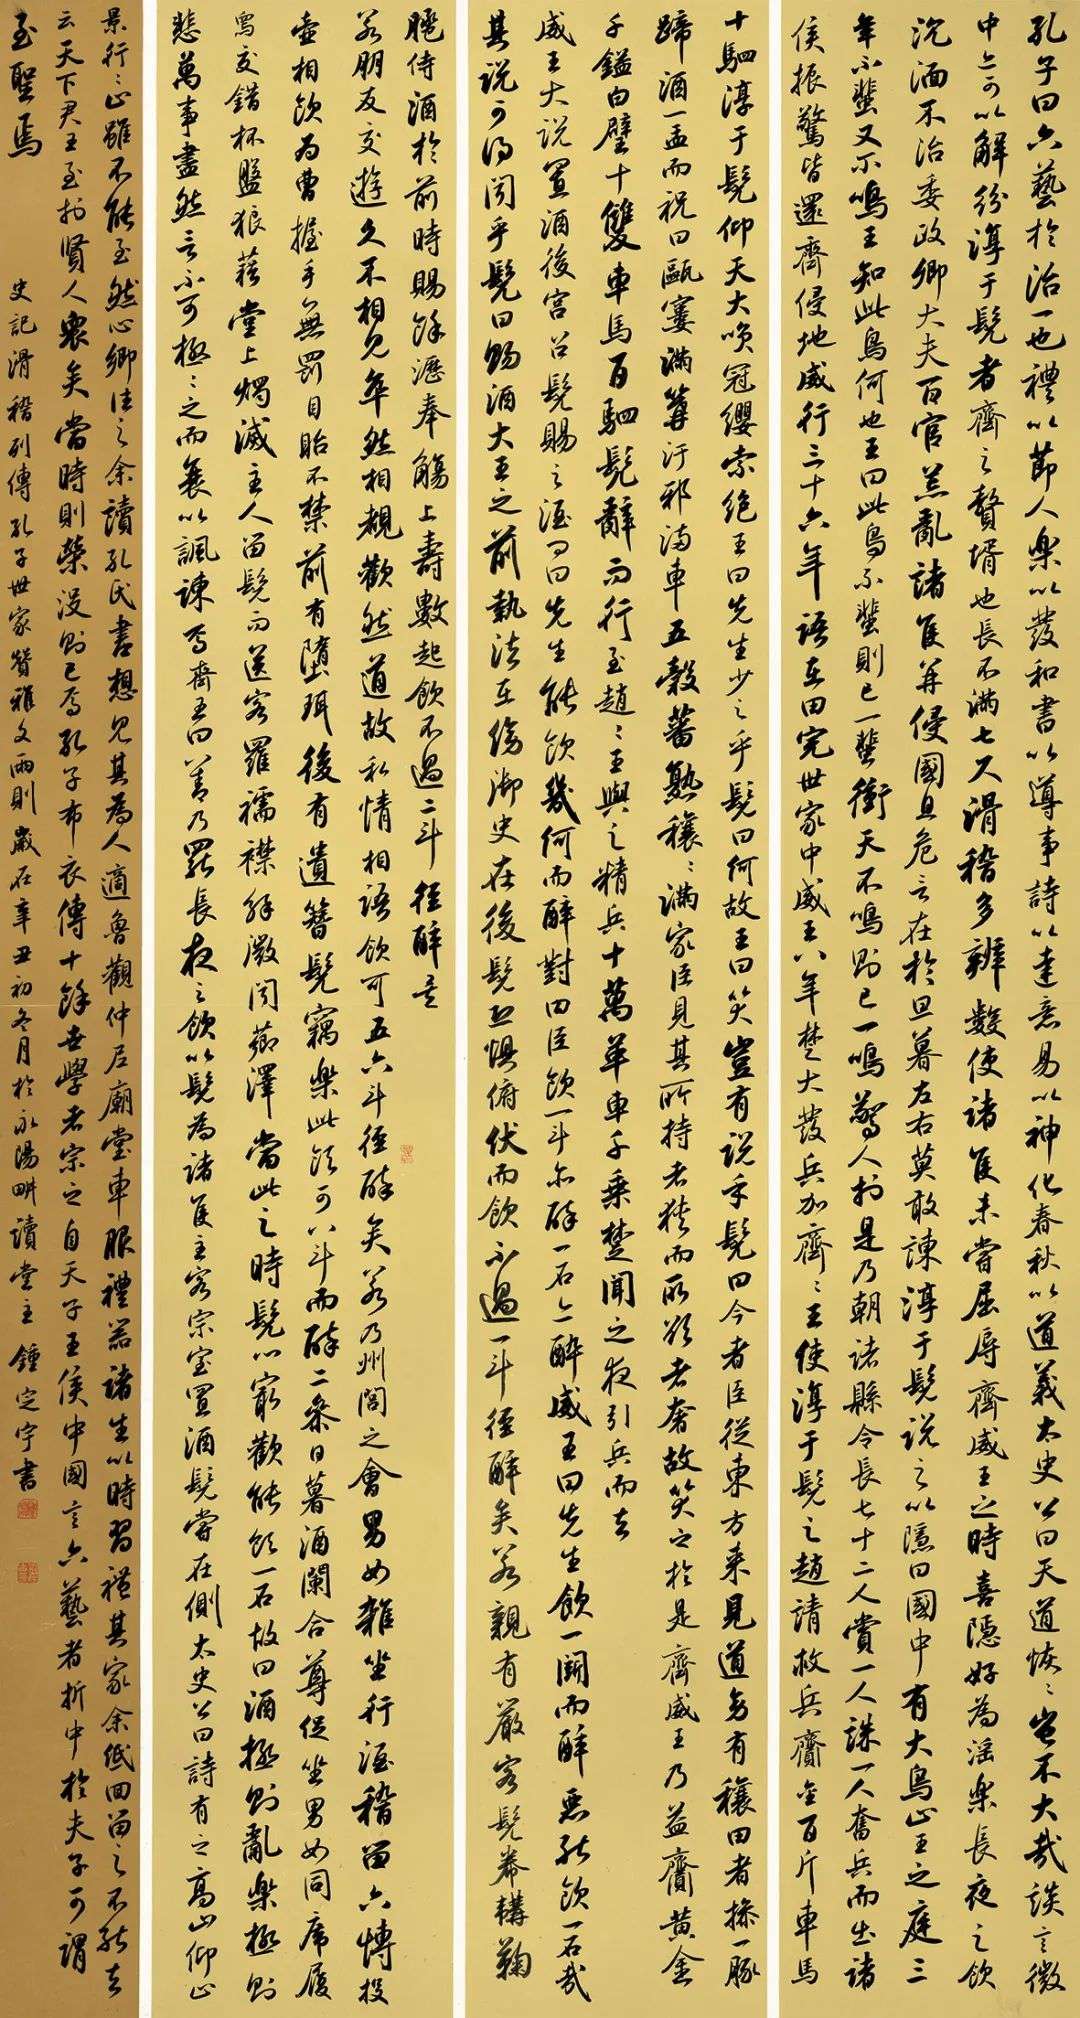 孔子曰六藝於治一也禮以節人樂以發和書以導事詩以達意易以神化春秋以道義太史公曰天道恢〻豈不大哉談言微
中亦可以解紛淳于髡者齊之贅壻也長不滿七尺滑稽多辯數使諸侯未嘗屈辱齊威王之時喜隱好為淫樂長夜之飲
沉湎不治委政卿大夫百官荒亂諸侯并侵國且危亡在於旦暮左右莫敢諫淳于髡說之以隱曰國中有大鳥止王之庭三
年不蜚又不鳴王知此鳥何也王曰此鳥不蜚則已一蜚衝天不鳴則已一鳴驚人於是乃朝諸縣令長七十二人賞一人誅一人奮兵而出諸
侯振驚皆還齊侵地威行三十六年語在田完世家中威王八年楚大發兵加齊〻王使淳于髡之趙請救兵齎金百斤車馬
十駟淳于髡仰天大笑冠纓索絕王曰先生少之乎髡曰何故王曰笑豈有說乎髡曰今者臣從東方來見道旁有穰田者操一豚
蹄酒一盂而祝曰甌窶滿篝汙邪滿車五穀蕃熟穰〻滿家臣見其所持者狹而所欲者奢故笑之於是齊威王乃益齎黃金
千鎰白璧十雙車馬百駟髡辭而行至趙〻王與之精兵十萬革車千乘楚聞之夜引兵而去
威王大說置酒後宮召髡賜之酒問曰先生能飲幾何而醉對曰臣飲一斗亦醉一石亦醉威王曰先生飲一斗而醉惡能飲一石哉
其說可得聞乎髡曰賜酒大王之前執法在傍御史在後髡恐懼俯伏而飲不過一斗徑醉矣若親有嚴客髡帣韝鞠
𦜕侍酒於前時賜餘瀝奉觴上壽數起飲不過二斗徑醉矣
若朋友交遊久不相見卒然相覩歡然道故私情相語飲可五六斗徑醉矣若乃州閭之會男女雜坐行酒稽留六博投
壺相飲為曹握手無罰目眙不禁前有墮珥後有遺簪髡竊樂此飲可八斗而醉二參日暮酒闌合尊促坐男女同席履
舄交錯杯盤狼藉堂上燭滅主人留髡而送客羅襦襟解微聞薌澤當此之時髡心最歡能飲一石故曰酒極則亂樂極則
悲萬事盡然言不可極〻之而衰以諷諫焉齊王曰善乃罷長夜之飲以髡為諸侯主客宗室置酒髡嘗在側太史公曰詩有之高山仰止
景行〻止雖不能至然心鄉往之余讀孔氏書想見其為人適魯觀仲尼廟堂車服禮器諸生以時習禮其家余低回留之不能去
云天下君王至於賢人眾矣當時則榮沒則已焉孔子布衣傳十餘世學者宗之自天子王侯中國言六藝者折中於夫子可謂
至聖焉
史記滑稽列傳孔子世家贊雅文兩則歲在辛丑初冬月於永陽畊讀堂主鍾定宇書